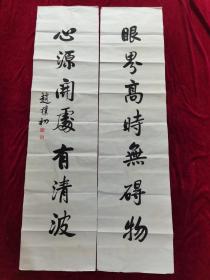 眼界高時無碍物
心源開處有清波
趙樸初